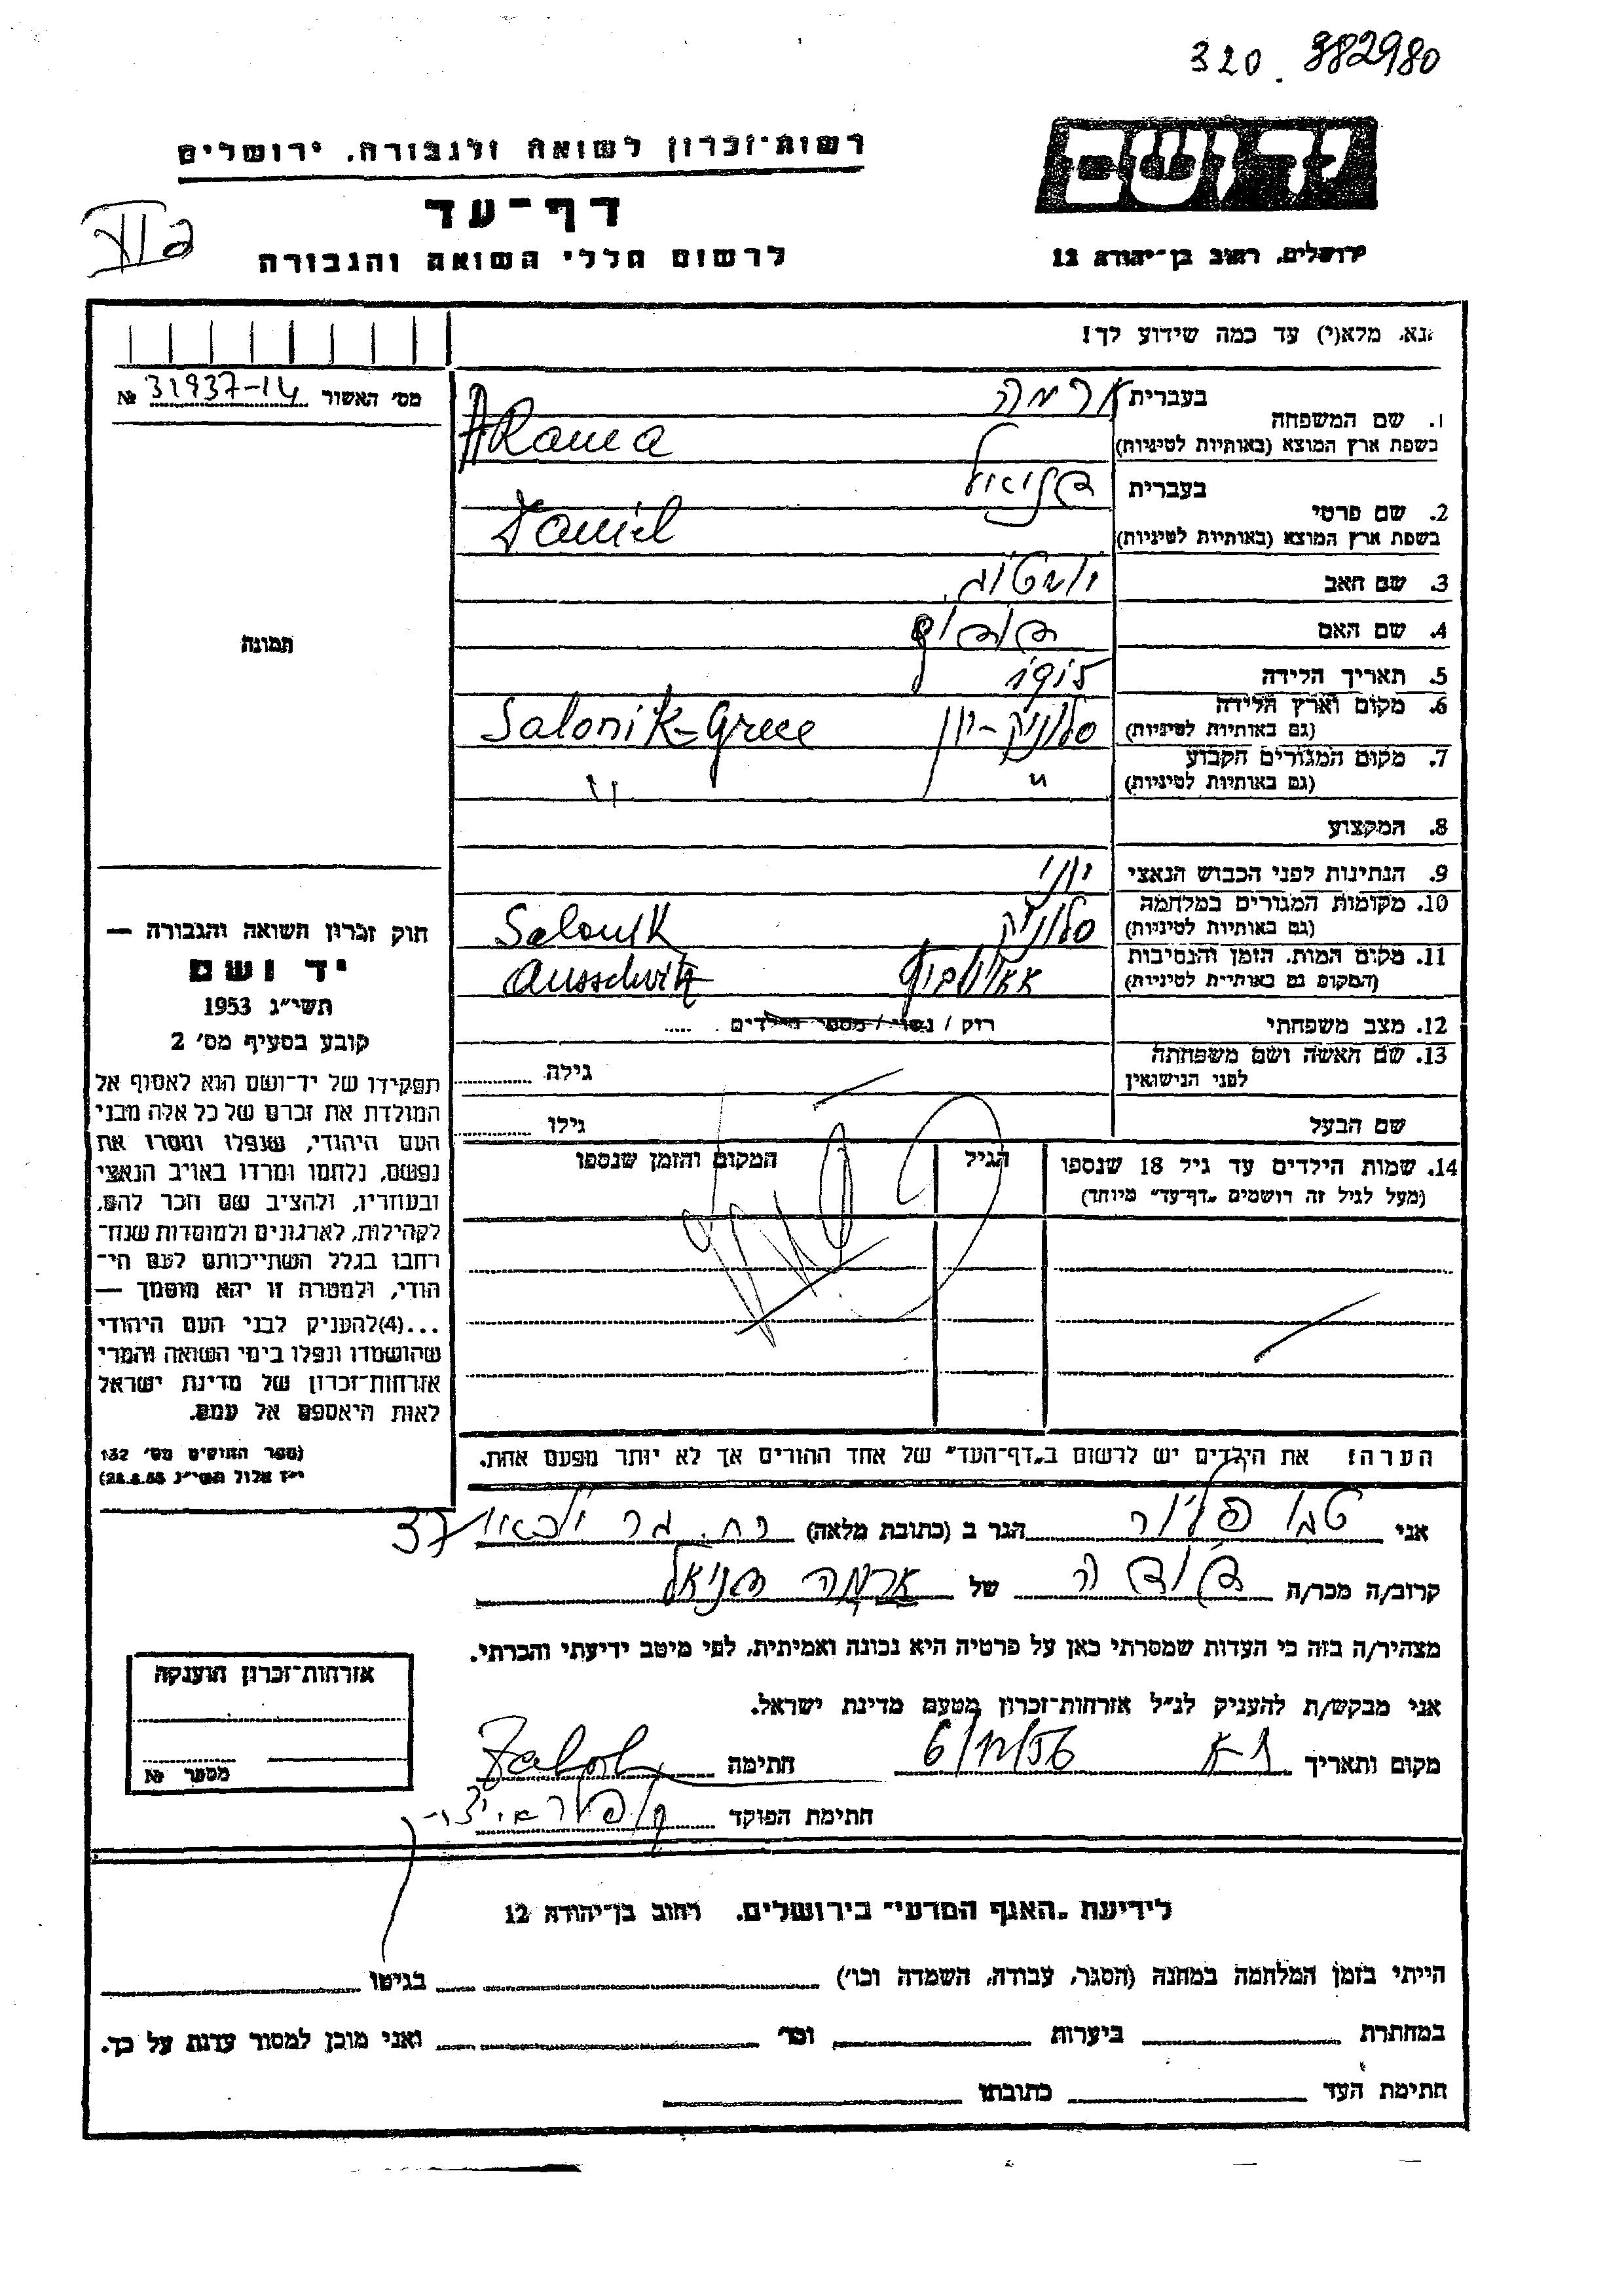 320. 982980
יד ושם
רשות־זכרון לשואה ולגבורה, ירושלים
דף־עד
ירושלים, רחוב בן־יהודה 12
לרשום חללי השואה והגבורה
נא, מלא(י) עד כמה שידוע לך!
מס׳ האשור 31937-14 №
1. שם המשפחה
בעברית ארמה
בשפת ארץ המוצא (באותיות לטיניות) ARama
2. שם פרטי
בעברית דניאל
בשפת ארץ המוצא (באותיות לטיניות) Daniel
3. שם האב יומטוב
4. שם האם
5. תאריך הלידה 1915
6. מקום וארץ הלידה (גם באותיות לטיניות) סלוניק - יון Salonik-Grece
7. מקום המגורים הקבוע (גם באותיות לטיניות) " "
8. המקצוע
9. הנתינות לפני הכבוש הנאצי יוני
10. מקומות המגורים במלחמה (גם באותיות לטיניות) סלוניק Salonik
11. מקום המות, הזמן והנסיבות (המקום גם באותיות לטיניות) אאושוויץ Ausschwitz
12. מצב משפחתי רווק / נשוי / מספר הילדים .....
13. שם האשה ושם משפחתה לפני הנישואין גילה
שם הבעל גילו
14. שמות הילדים עד גיל 18 שנספו
(מעל לגיל זה רושמים „דף־עד״ מיוחד)
הגיל
המקום והזמן שנספו
הערה: את הילדים יש לרשום ב„דף־העד״ של אחד ההורים אך לא יותר מפעם אחת.
תמונה
חוק זכרון השואה והגבורה —
יד ושם
תשי״ג 1953
קובע בסעיף מס׳ 2
תפקידו של יד־ושם הוא לאסוף אל
המולדת את זכרם של כל אלה מבני
העם היהודי, שנפלו ומסרו את
נפשם, נלחמו ומרדו באויב הנאצי
ובעוזריו, ולהציב שם וזכר להם,
לקהילות, לארגונים ולמוסדות שנח־
רבו בגלל השתייכותם לעם הי־
הודי, ולמטרה זו יהא מוסמך —
...(4) להעניק לבני העם היהודי
שהושמדו ונפלו בימי השואה והמרי
אזרחות־זכרון של מדינת ישראל
לאות היאספם אל עמם.
(ספר החוקים מס׳ 132
י״ז אלול תשי״ג 28.8.53)
אני הגר ב (כתובת מלאה) רח. 37
קרוב/ה מכר/ה דודה של ארמה דניאל
מצהיר/ה בזה כי העדות שמסרתי כאן על פרטיה היא נכונה ואמיתית, לפי מיטב ידיעתי והכרתי.
אני מבקש/ת להעניק לנ״ל אזרחות־זכרון מטעם מדינת ישראל.
מקום ותאריך 6/12/56 חתימה
חתימת הפוקד
אזרחות־זכרון הוענקה
מספר №
לידיעת „האגף המדעי״ בירושלים, רחוב בן־יהודה 12
הייתי בזמן המלחמה במחנה (הסגר, עבודה, השמדה וכו׳) בגיטו
במחתרת ביערות וכו׳ ואני מוכן למסור עדות על כך.
חתימת העד כתובתו